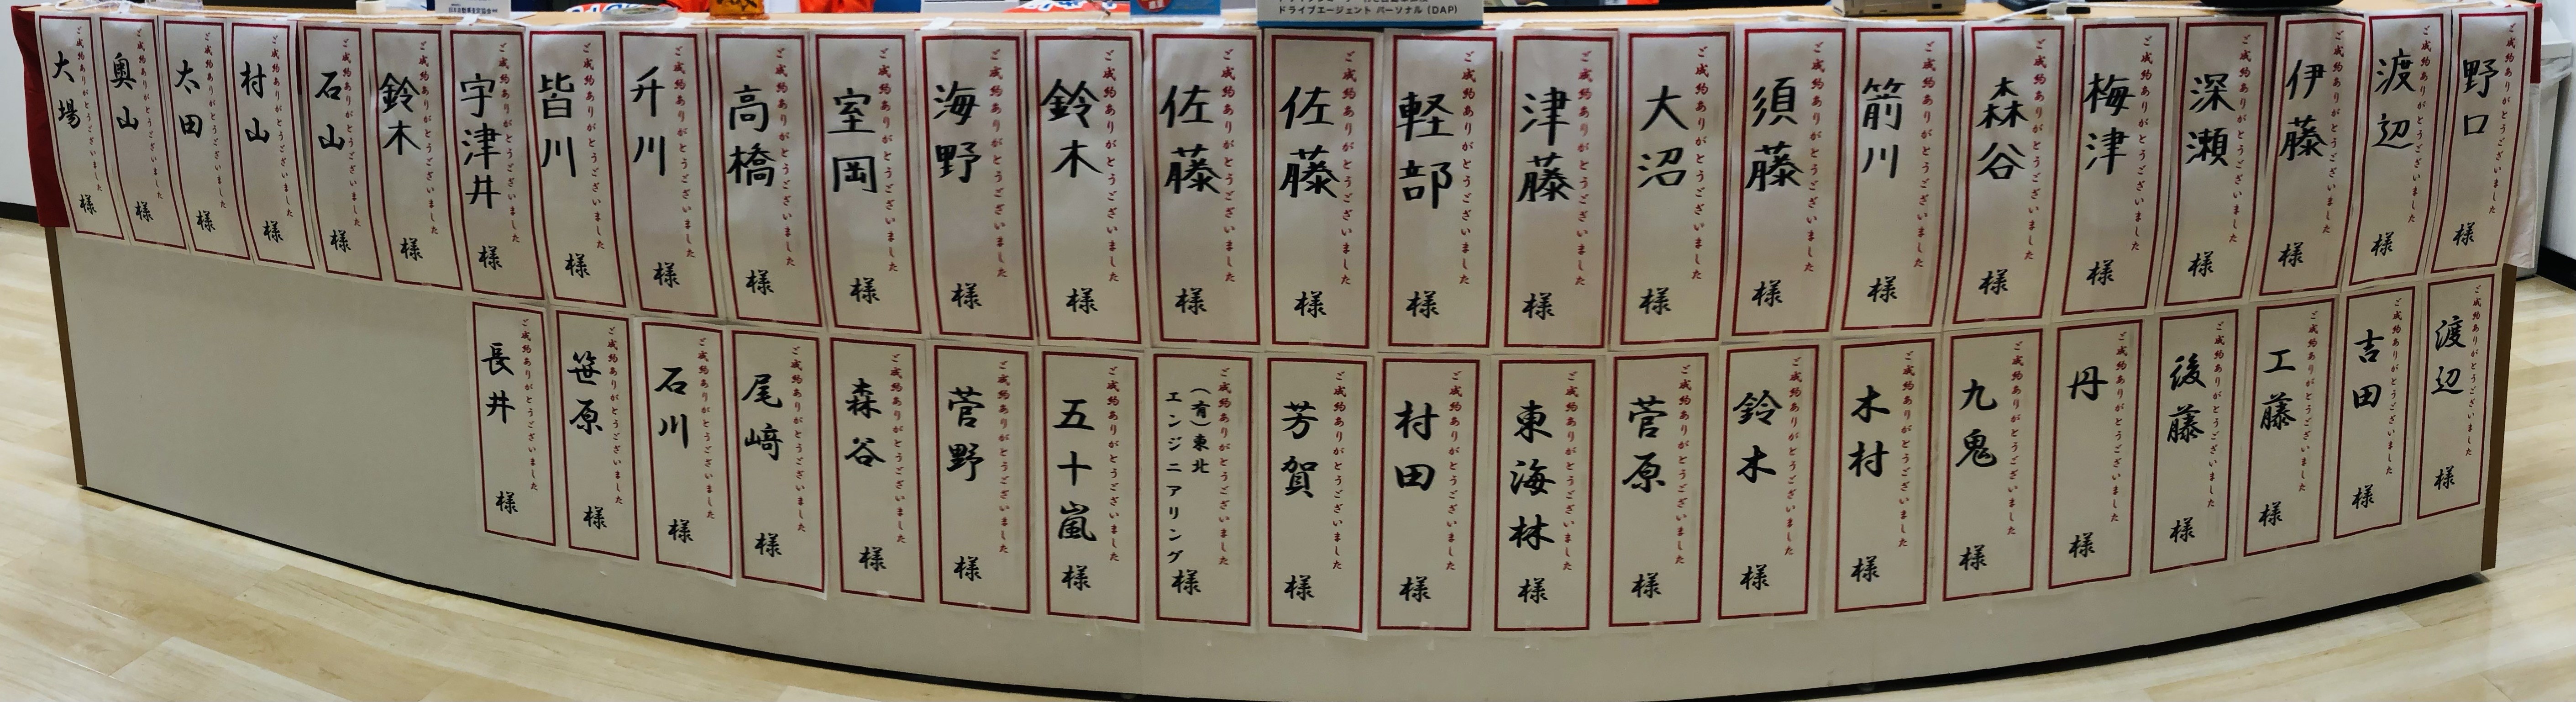 ドライブエージェント パーソナル (DAP)
ご成約ありがとうございました
野口 様
ご成約ありがとうございました
渡辺 様
ご成約ありがとうございました
伊藤 様
ご成約ありがとうございました
深瀬 様
ご成約ありがとうございました
梅津 様
ご成約ありがとうございました
森谷 様
ご成約ありがとうございました
箭川 様
ご成約ありがとうございました
須藤 様
ご成約ありがとうございました
大沼 様
ご成約ありがとうございました
津藤 様
ご成約ありがとうございました
軽部 様
ご成約ありがとうございました
佐藤 様
ご成約ありがとうございました
佐藤 様
ご成約ありがとうございました
鈴木 様
ご成約ありがとうございました
海野 様
ご成約ありがとうございました
室岡 様
ご成約ありがとうございました
高橋 様
ご成約ありがとうございました
升川 様
ご成約ありがとうございました
皆川 様
ご成約ありがとうございました
宇津井 様
ご成約ありがとうございました
鈴木 様
ご成約ありがとうございました
石山 様
ご成約ありがとうございました
村山 様
ご成約ありがとうございました
太田 様
ご成約ありがとうございました
奥山 様
ご成約ありがとうございました
大場 様
ご成約ありがとうございました
渡辺 様
ご成約ありがとうございました
吉田 様
ご成約ありがとうございました
工藤 様
ご成約ありがとうございました
後藤 様
ご成約ありがとうございました
丹 様
ご成約ありがとうございました
九鬼 様
ご成約ありがとうございました
木村 様
ご成約ありがとうございました
鈴木 様
ご成約ありがとうございました
菅原 様
ご成約ありがとうございました
東海林 様
ご成約ありがとうございました
村田 様
ご成約ありがとうございました
芳賀 様
ご成約ありがとうございました
(有)東北
エンジニアリング 様
ご成約ありがとうございました
五十嵐 様
ご成約ありがとうございました
菅野 様
ご成約ありがとうございました
森谷 様
ご成約ありがとうございました
尾﨑 様
ご成約ありがとうございました
石川 様
ご成約ありがとうございました
笹原 様
ご成約ありがとうございました
長井 様